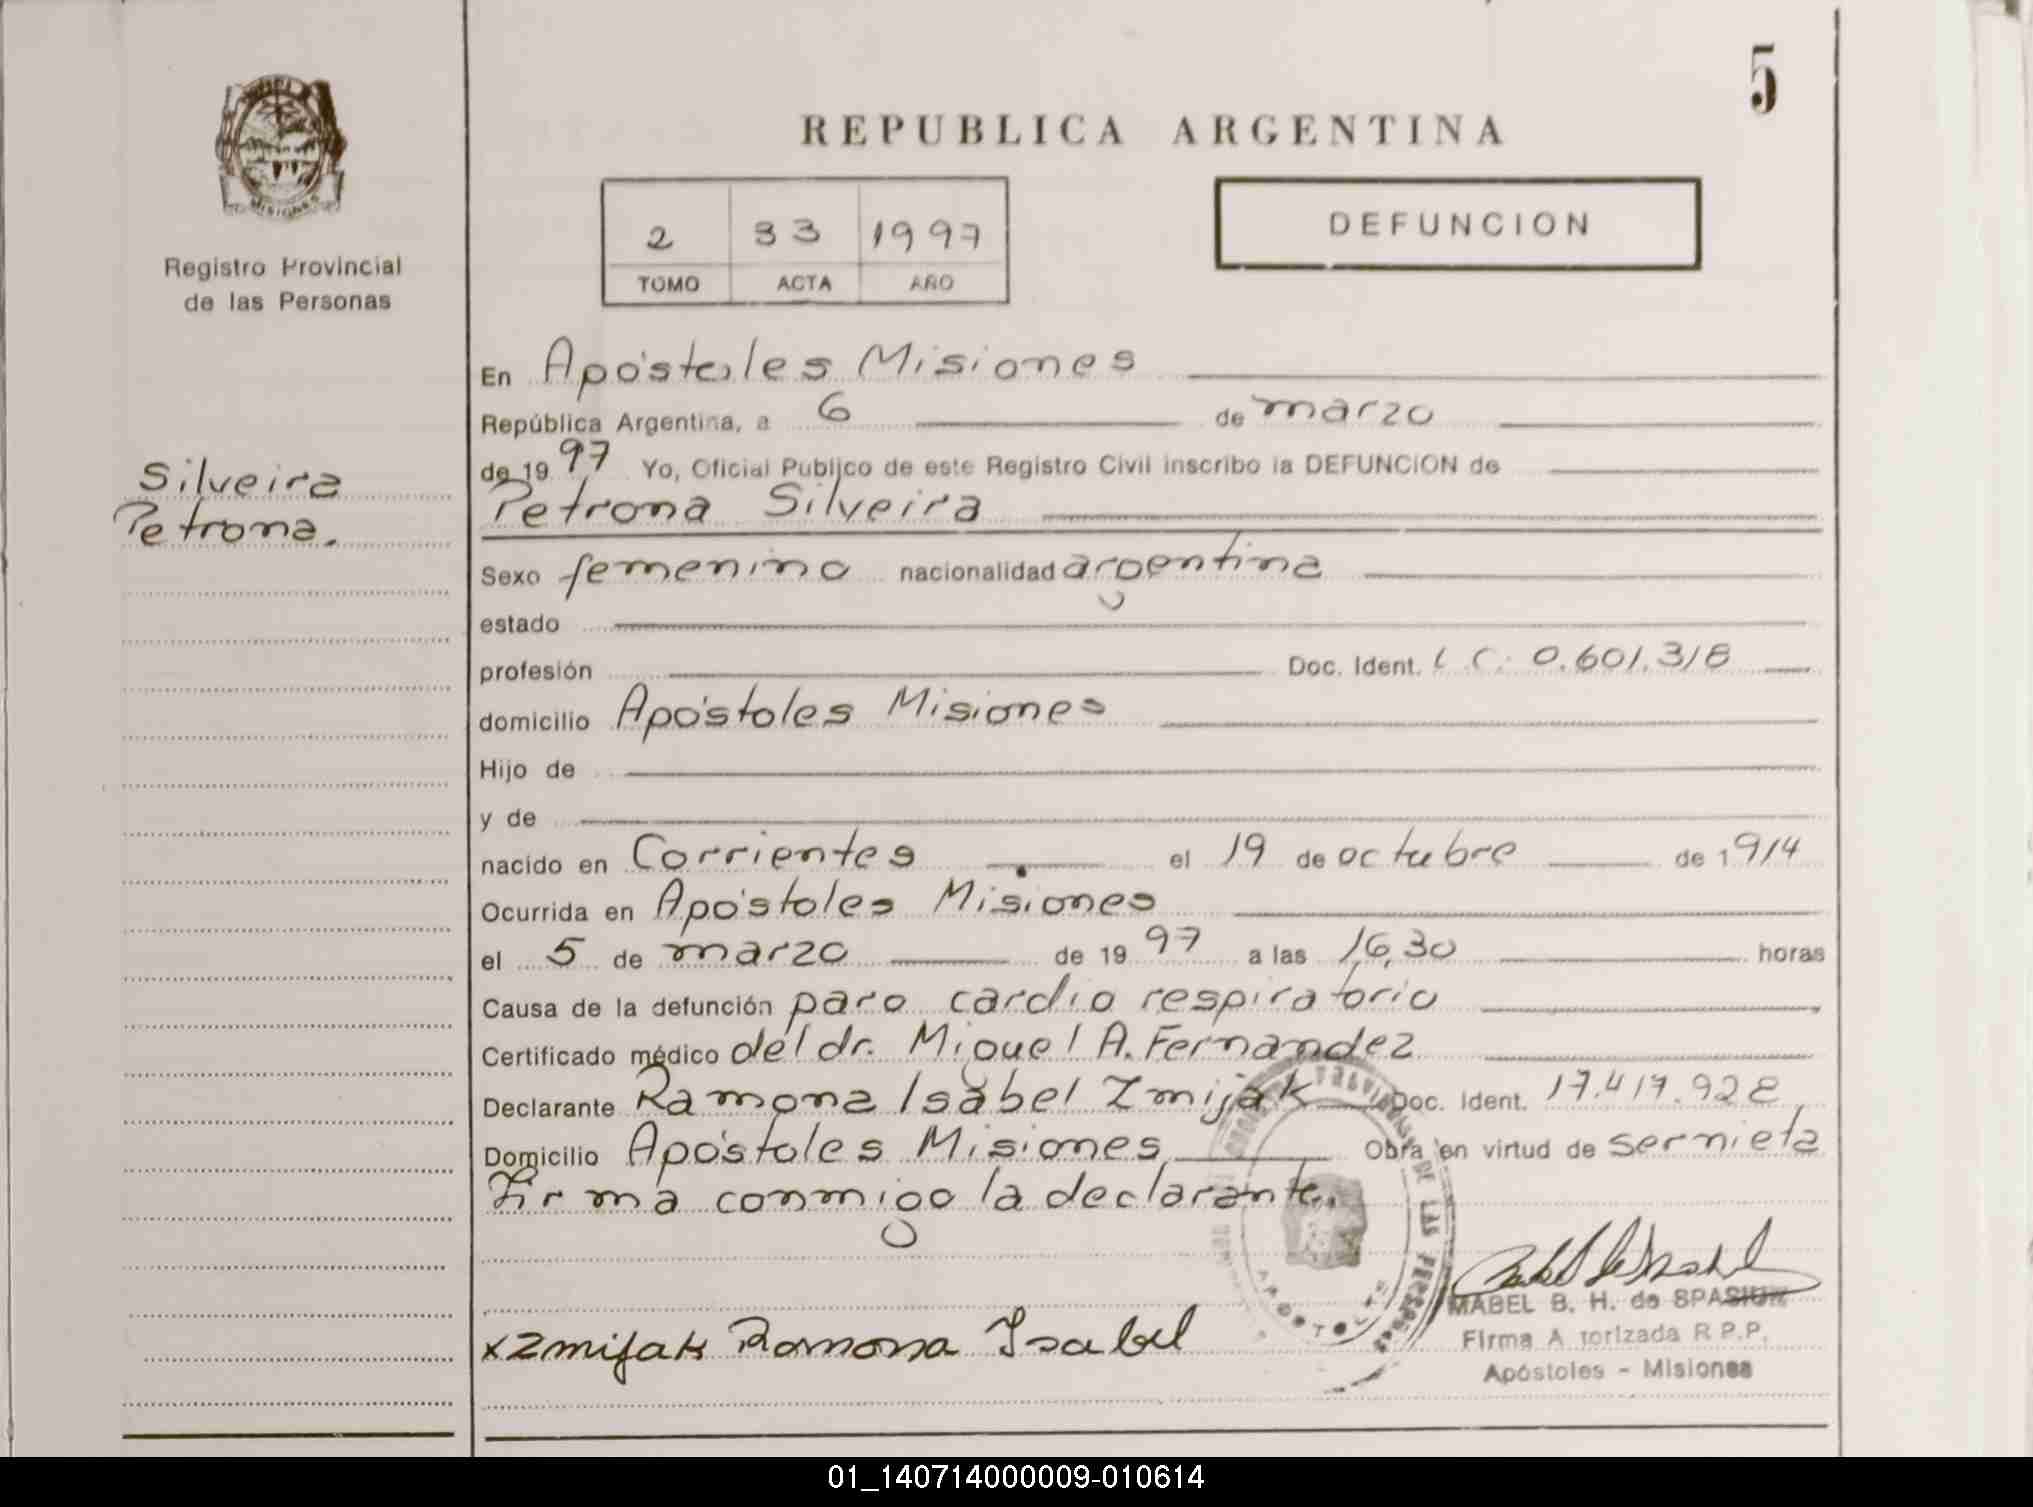 5
REPUBLICA ARGENTINA
MISIONES
Registro Provincial
de las Personas
2 33 1997
TOMO ACTA AÑO
DEFUNCION
Silveira
Petrona.
En Apóstoles Misiones
República Argentina, a 6 de marzo
de 1997 Yo, Oficial Publico de este Registro Civil inscribo la DEFUNCION de
Petrona Silveira
Sexo femenino nacionalidad argentina
estado
profesión Doc. Ident. L C. 0.601.318
domicilio Apóstoles Misiones
Hijo de
y de
nacido en Corrientes el 19 de octubre de 1914
Ocurrida en Apóstoles Misiones
el 5 de marzo de 1997 a las 16,30 horas
Causa de la defunción paro cardio respiratorio
Certificado médico del dr. Miguel A. Fernandez
Declarante Ramona Isabel Zmijak Doc. Ident. 17.417.928
Domicilio Apóstoles Misiones Obra en virtud de ser nieta
Firma conmigo la declarante.
DE LAS PERSONAS
MABEL B. H. de SPASIUK
Firma A torizada R.P.P.
Apóstoles - Misiones
x Zmijak Ramona Isabel
01_140714000009-010614